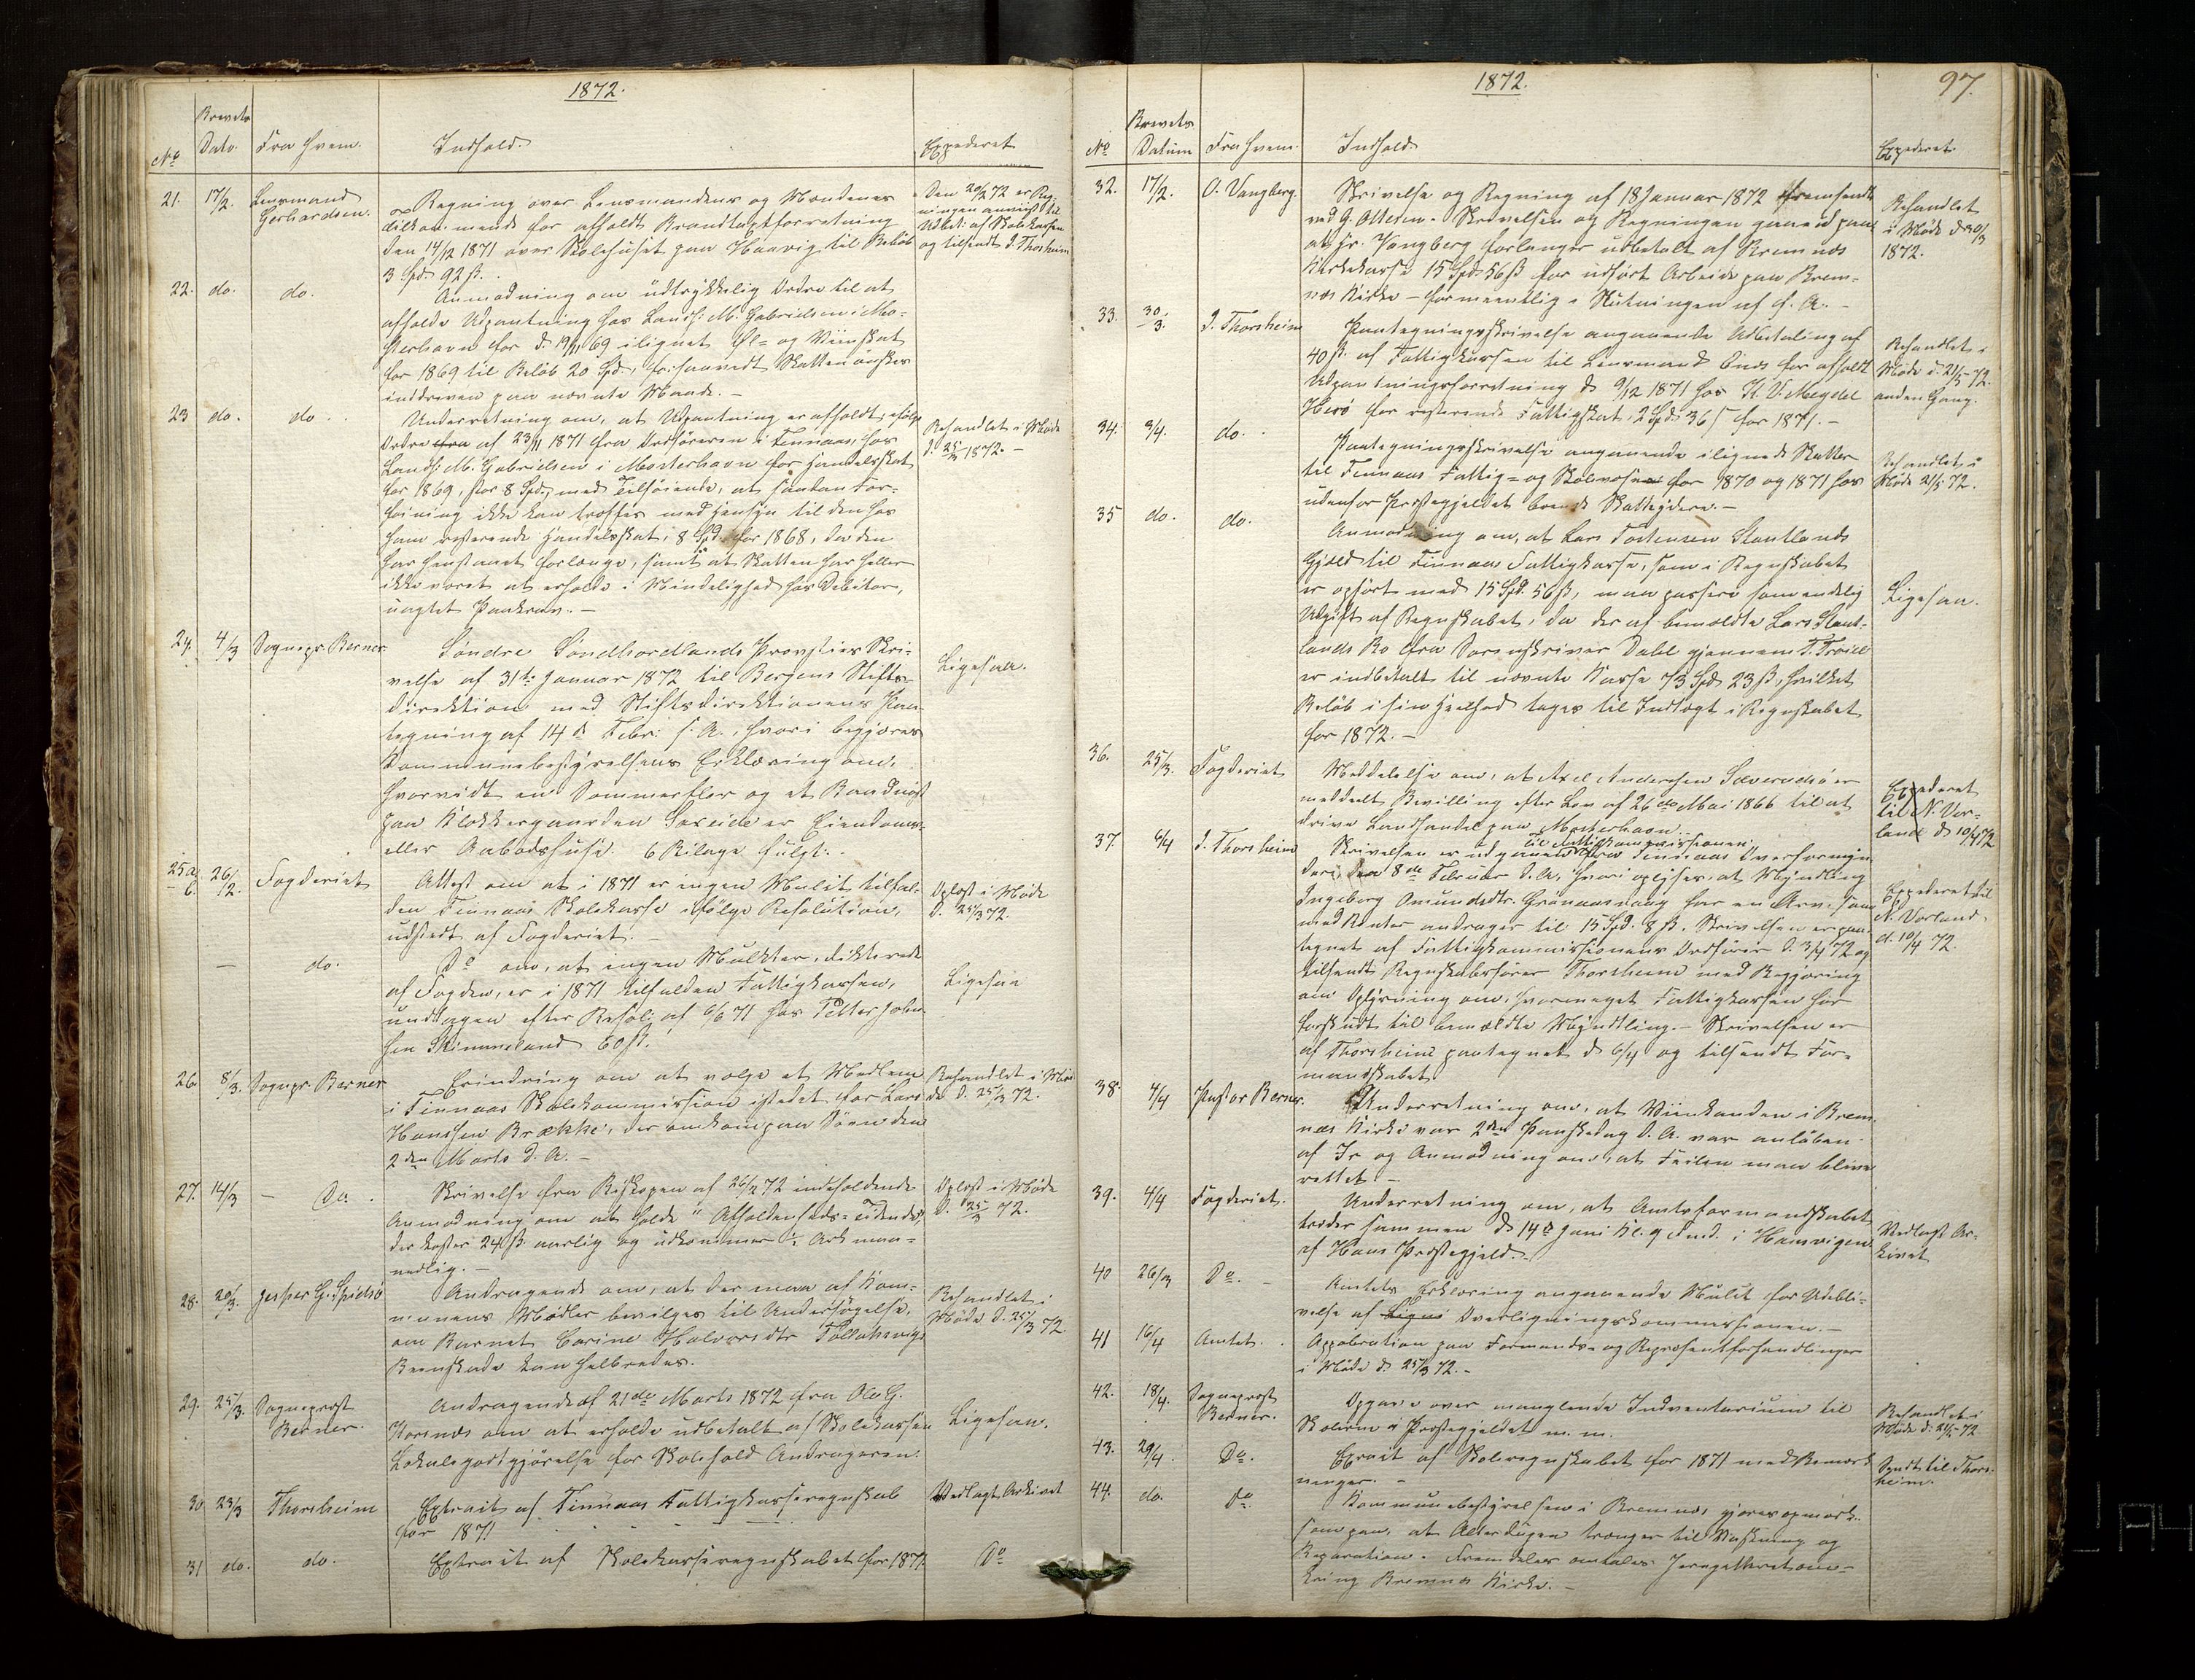 1872.
No
Brevets
Dato.
Fra hvem.
Indhold.
Expederet
21.
17/2.
Lensmand
Gerhardsen.
Regning over Lensmandens og Mændenes
tilkommende for afholdt Brandtaxtforretning
den 14/12 1871 over Skolehuset paa Haavig til Beløb
3 Spd 92 ß.
Den 20/2 72 er Reg-
ningen anvist til
Udbet: af Skolekassen
og tilsendt I. Thorsheim
22.
do.
do.
Anmodning om udtrykkelig Ordre til at
afholde Udpantning hos Landh: M. Gabrielsen i Mo-
sterhavn for d. 19/11 69 ilignet Øl- og Viinskat
for 1869 til Beløb 20 Spd, forsaavidt Skatten ønskes
inddreven paa nævnte Maade. -
23
do.
do.
Underretning om, at Udpantning er afholdt, ifølge
Ordre fra af 23/11 1871 fra Ordføreren i Finnaas, hos
Landh: M. Gabrielsen i Mosterhavn for Handelsskat
for 1869, stor 8 Spd, med Tilføiende, at saadan For-
føining ikke kan træffes med Hensyn til den hos
ham resterende Handelsskat, 8 Spd for 1868, da den
har henstaaet forlænge, samt at Skatten har heller
ikke været at erholde i Mindelighed hos Debitor,
uagtet Paakrav. -
Behandlet i Møde
d. 25/3 1872. -
24.
4/3
Sognepr. Berner
Søndre Søndhordlands Provsties Skri-
velse af 31te Januar 1872 til Bergens Stifts-
direktion med Stiftsdirektionens Paa-
tegning af 14de Febr: s. A., hvori begjæres
Kommunebestyrelsens Erklæring om,
hvorvidt en Sommerflor og et Baadnøst
paa Klokkergaarden Sæxeide er Eiendoms-
eller Aabodshuse. 6 Bilage fulgt.
Ligesaa.
25 a.
26/2.
Fogderiet
Attest om at i 1871 er ingen Mulct tilfal-
den Finnaas Skolekasse ifølge Resolution,
udstedt af Fogderiet. -
Oplæst i Møde
d. 25/3 72.
b.
-
do.
Do om, at ingen Mulkter, dikterede
af Fogden, er i 1871 tilfalden Fattigkassen,
undtagen efter Resol: af 6/6 71 hos Petter John-
sen Skimmeland 60 ß.
Ligesaa
26.
8/3.
Sognepr. Berner
Erindring om at vælge et Medlem
i Finnaas Skolekommission istedet for Lars
Hanssen Brække, der omkom paa Søen den
2den Marts d. A. -
Behandlet i Mø-
de d. 25/3 72.
27.
14/3
- Do.
Skrivelse fra Biskopen af 26/2 72 indeholdende
Anmodning om at holde "Afholdenheds-Tidende",
der koster 24 ß. aarlig og udkommer 1/2 Ark maa-
nedlig. -
Oplæst i Møde
d. 25/3 72.
28.
20/3.
Jesper G. Spidsø
Andragende om, at der maa af Kom-
munens Midler bevilges til Undersøgelse,
om Barnet Carine Halvorsdtr
Beenskade kan helbredes.
Behandlet i
Møde d. 25/3 72.
29.
25/3.
Sogneprest
Berner.
Andragende af 21de Marts 1872 fra Ole G.
om at erholde udbetalt af Skolekassen
Lokalegodtgjørelse for Skolehold Andrageren.
Ligesaa.
30.
23/3
Thorsheim
Extrait af Finnaas Fattigkasseregnskab
for 1871
Vedlagt Arkivet
31
do.
do.
Extrait af Skolekasseregnskabet for 1871.
Do
1872.
97.
No
Brevets
Datum
Fra hvem.
Indhold.
Expederet.
32.
17/2.
O. Vangberg.
Skrivelse og Regning af 18 Januar 1872 fremsendt
ved G. Skrivelsen og Regningen gaar ud paa
at Hr. Vangberg forlanger udbetalt af Bremnæs
Kirkekasse 15 Spd 56 ß for udført Arbeide paa Brem-
næs Kirke - formeentlig i Slutningen af f. A. -
Behandlet
i Møde d. 30/3
1872.
33.
30/3.
I. Thorsheim
Paategningsskrivelse angaaende Udbetaling af
40 ß. af Fattigkassen til Lensmand for afholdt
Udpantningsforretning d. 9/12 1871 hos
for resterende Fattigskat, 2 Spd 36 ß for 1871. -
Behandlet i
Møde d. 21/5 72.
anden Gang.
34.
3/4.
do.
Paategningsskrivelse angaaende ilignede Skatter
til Finnaas Fattig- og Skolevæsen for 1870 og 1871 hos
udenfor Præstegjeldet boende Skatteydere. -
Behandlet i
Møde 21/5 72.
35
do.
do.
Anmodning om, at Lars Torstensen Stautlands
Gjæld til Finnaas Fattigkasse, som i Regnskabet
er opført med 15 Spd. 56 ß, maa passere som endelig
Udgift af Regnskabet, da der af bemeldte Lars Staut-
lands Bo fra Sorenskriver Dahl gjennem
er indbetalt til nævnte Kasse 73 Spd 23 ß, hvilket
Beløb i sin Heelhed tages til Indtægt i Regnskabet
for 1872. -
Ligesaa.
36.
25/3.
Fogderiet
Meddelelse om, at Axel Andersen er
meddeelt Bevilling efter Lov af 26de Mai 1866 til at
drive Landhandel paa Mosterhavn.
Expederet
til N. Vor-
land d. 10/4 72
37
6/4
I. Thorsheim
til Fattigkommissionen,
Skrivelsen er udgaaet fra Finnaas Overformyn-
deri den 8de Februar d. A., hvori oplyses, at Myndling
Ingeborg Omundsdtr. Grønaasvaag har en Arv, som
med Renter andrager til 15 Spd. 8 ß. Skrivelsen er paa-
tegnet af Fattigkommissionens Ordfører d. 3/4 72 og
tilsendt Regnskabsfører Thorsheim med Begjæring
om Oplysning om, hvormeget Fattigkassen har
forskudt til bemeldte Myndling. - Skrivelsen er
af Thorsheim paategnet d. 6/4 og tilsendt For-
mandskabet
Expederet til
N. Vorland,
d. 10/4 72.
38
4/4
Pastor Berner.
Underretning om, at Viinkanden i Brem-
næs Kirke var 2den Paaskedag d. A. var anløben
af Ir og Anmodning om, at Feilen maa blive
rettet. -
39.
4/4
Fogderiet.
Underretning om, at Amtsformandskabet
træder sammen d. 14de Juni Kl. 9 Fmd. i Hansvigen
af Haus Præstegjeld. -
Vedlagt Ar-
kivet
40
26/3
Do. -
Amtets Erklæring angaaende Mulct for Udebli-
velse af Ligni Overligningskommissionen. -
41
16/4
Amtet.
Approbation paa Formands- og Repræsentforhandlinger
i Møde d. 25/3 72. -
42.
18/4.
Sogneprest
Berner.
Opgave over manglende Indventarium til
Skolerne i Præstegjeldet m. m.
Behandlet i
Møde d. 21/5 72
43.
29/4.
Do.
Extrait af Skoleregnskabet for 1871 med Bemærk-
ninger. -
Sendt til Thors-
heim.
44.
do.
Do
Kommunebestyrelsen i Bremnæs gjøres opmærk-
som paa, at Alterdugen trænger til Vaskning og
Reparation. Fremdeles omtales Jerngitteret om-
kring Bremnæs Kirke. -